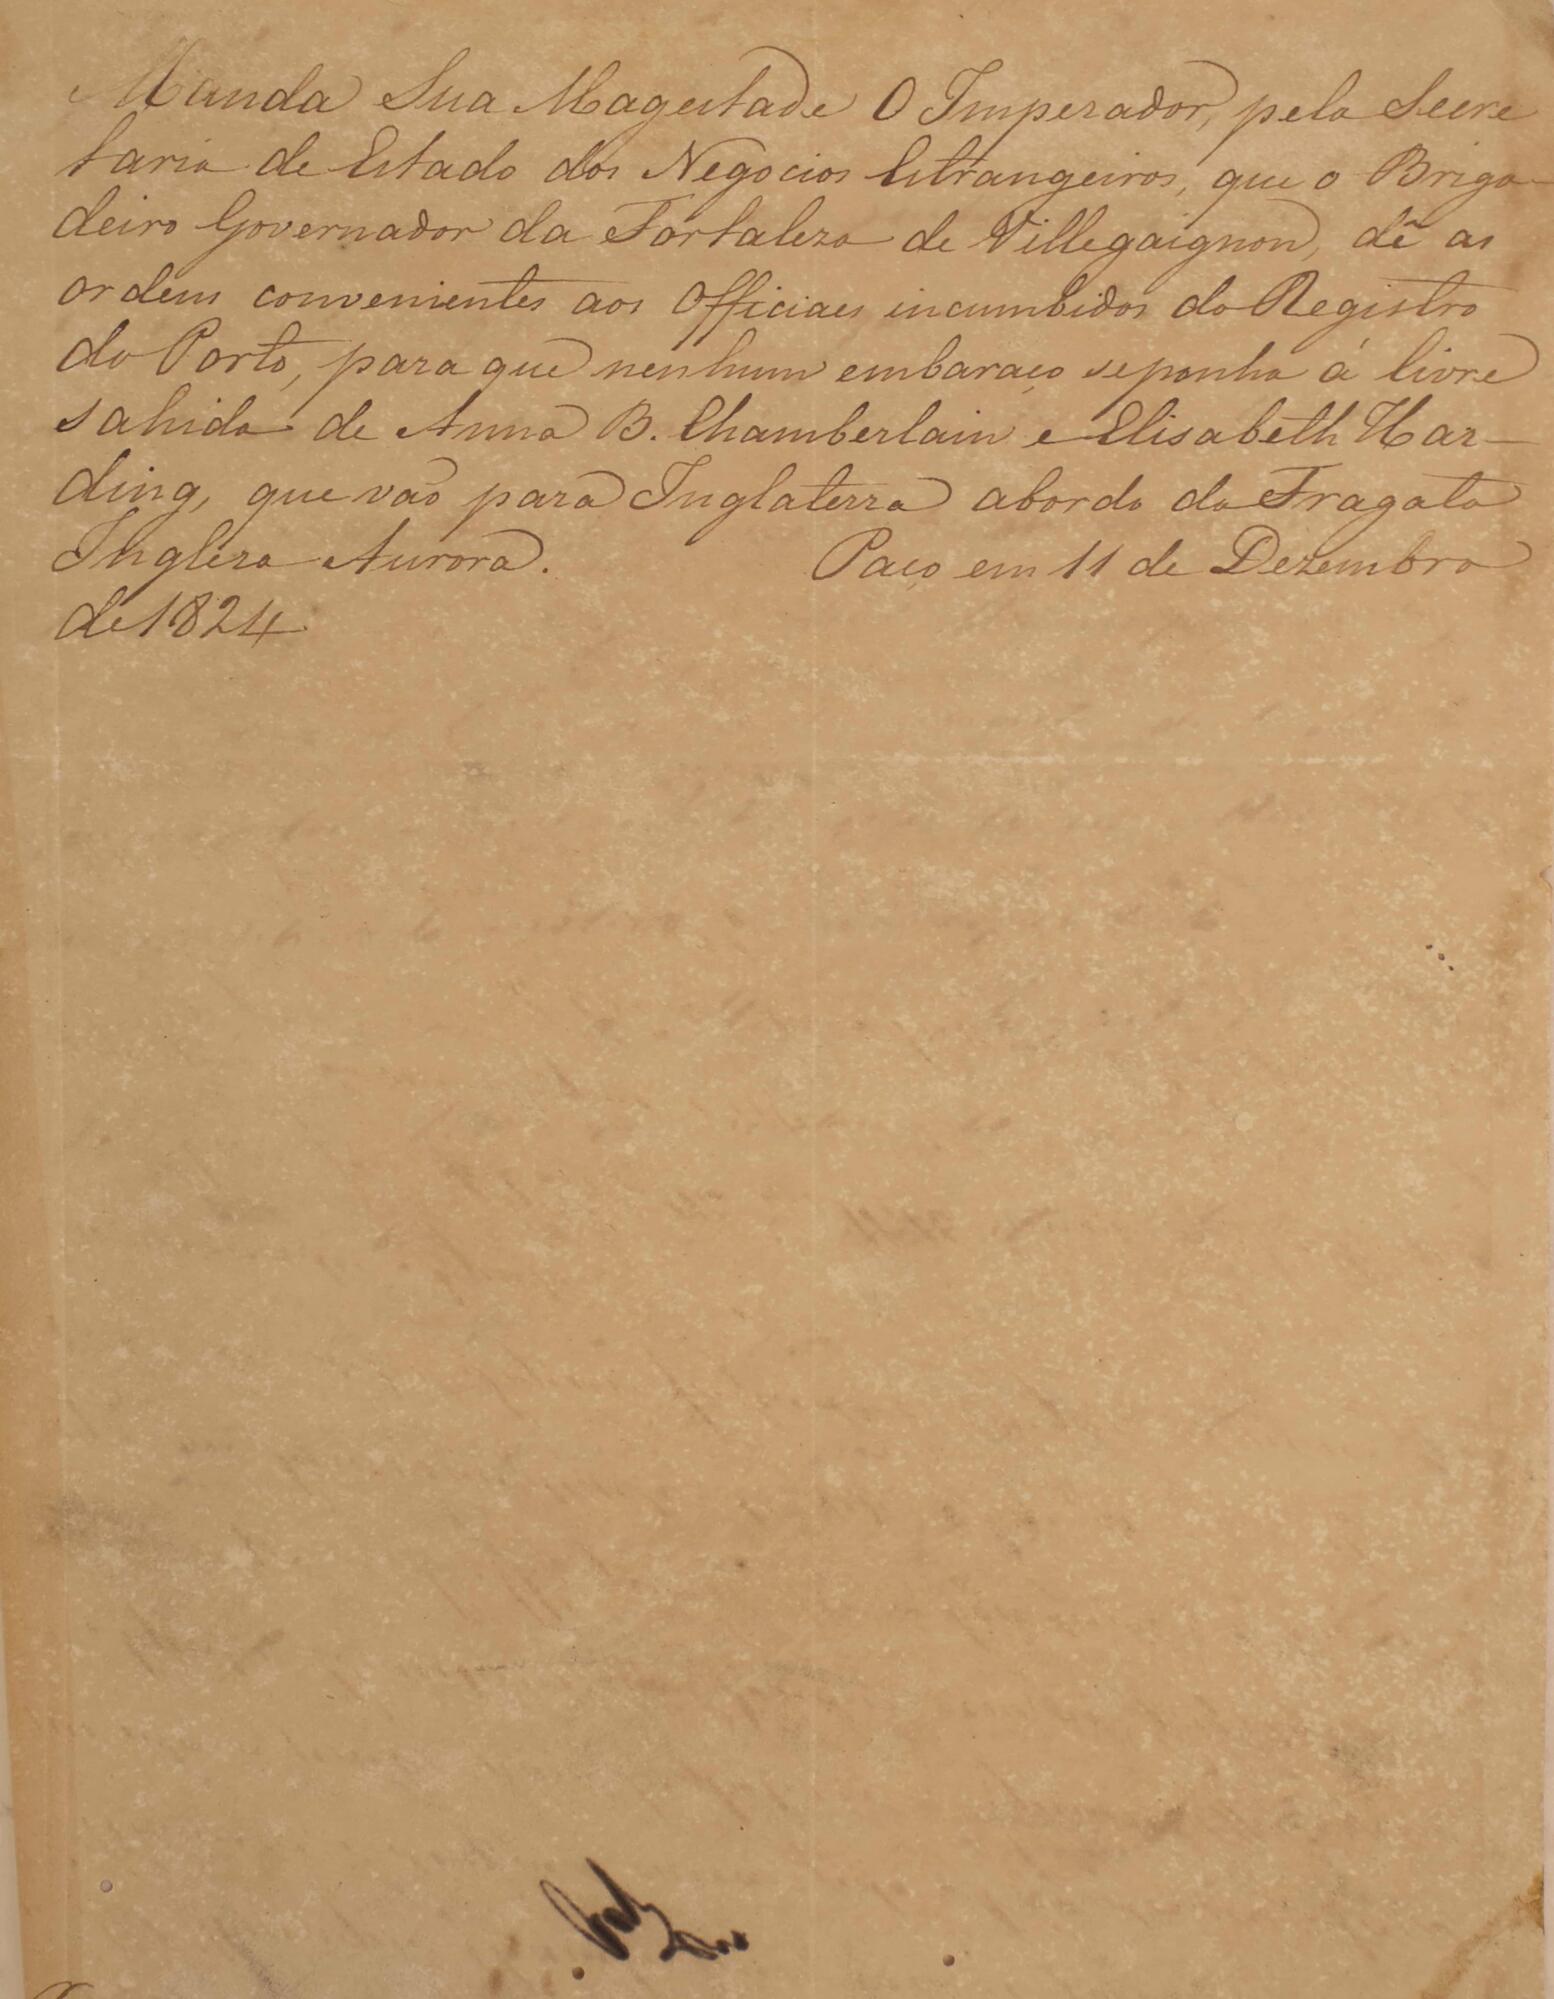 Manda Sua Magestade O Imperador, pela Secre
taria de Estado dos Negocios Estrangeiros, que o Briga-
deiro Governador da Fortaleza de Villegaignon, dê as
ordens convenientes aos Officiaes incumbidos do Registro
do Porto, para que nenhum embaraço se ponha á livre
sahida de Anna B. Chamberlain e Elisabeth Har-
ding, que vão para Inglaterra abordo da Fragata
Ingleza Aurora. Paço em 11 de Dezembro
de 1824